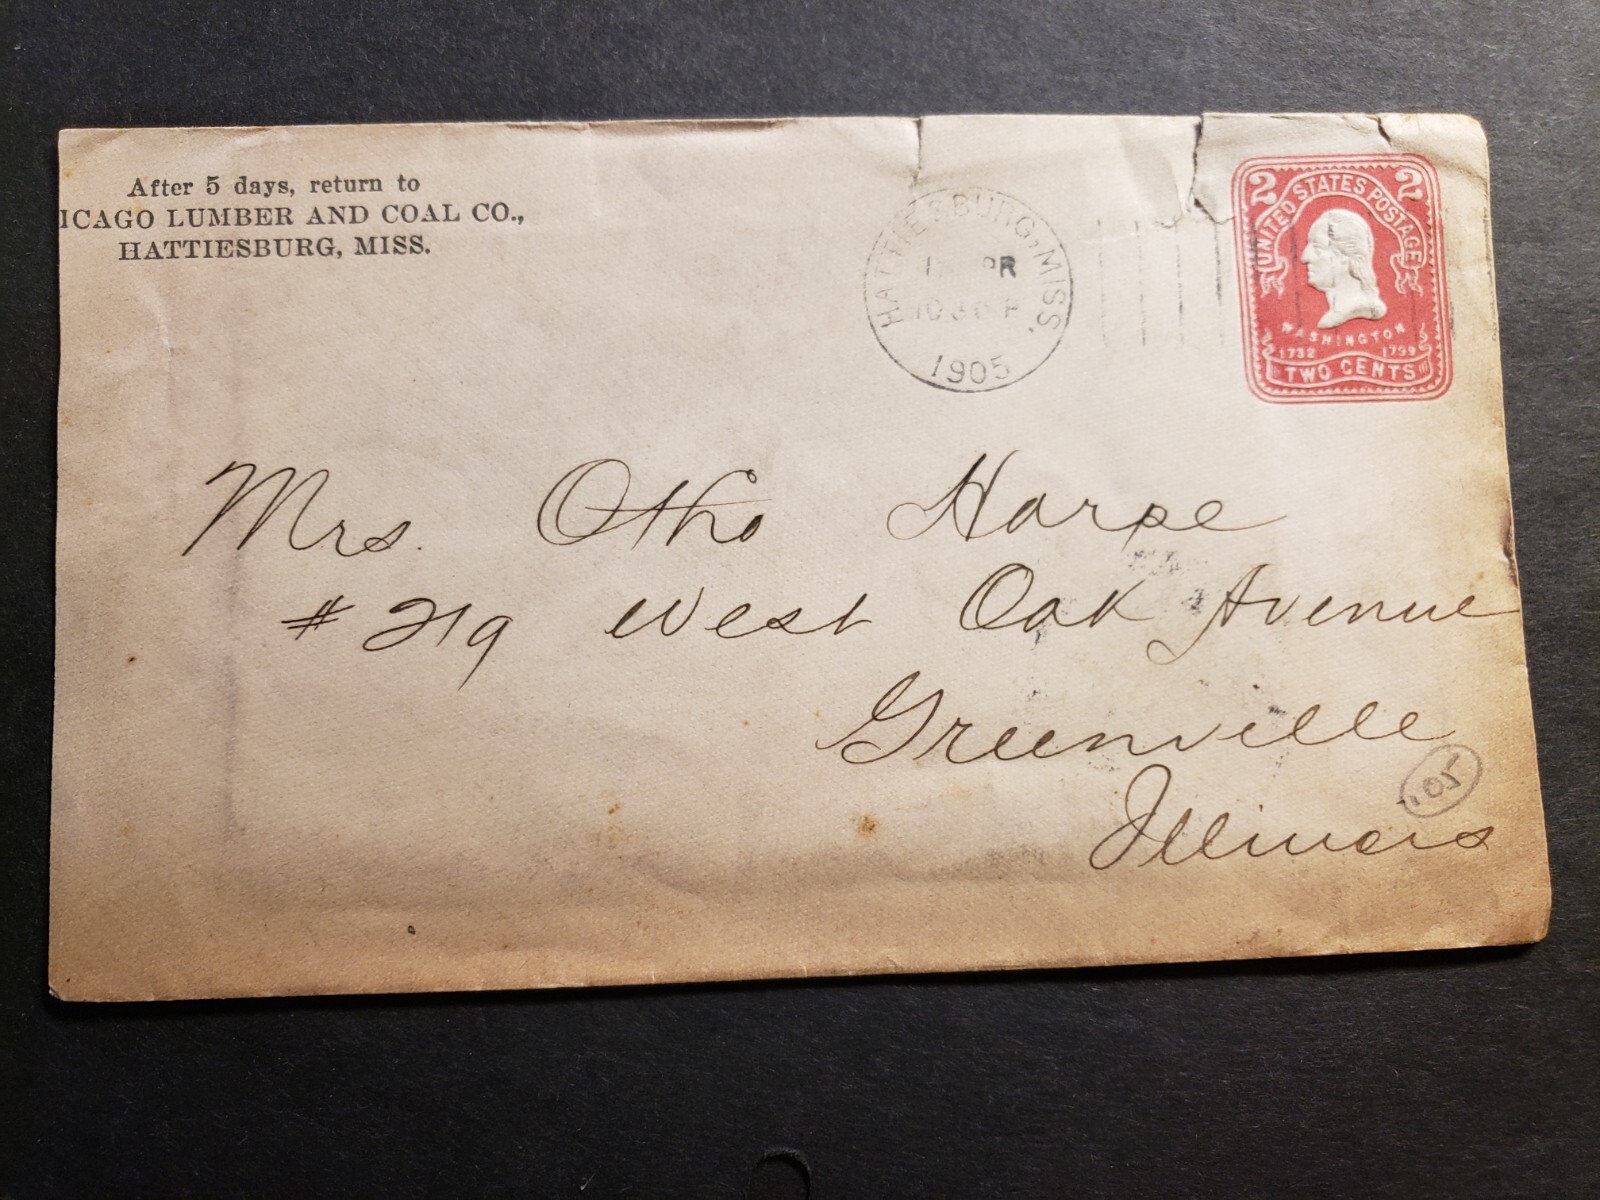 After 5 days, return to
ICAGO LUMBER AND COAL CO.,
HATTIESBURG, MISS.
HATTIESBURG, MISS.
PR
1905
2 2
UNITED STATES POSTAGE
WASHINGTON
1732 1799
TWO CENTS
Mrs. Otho Harpe
# 219 West Oak Avenue
Greenville
Illinois